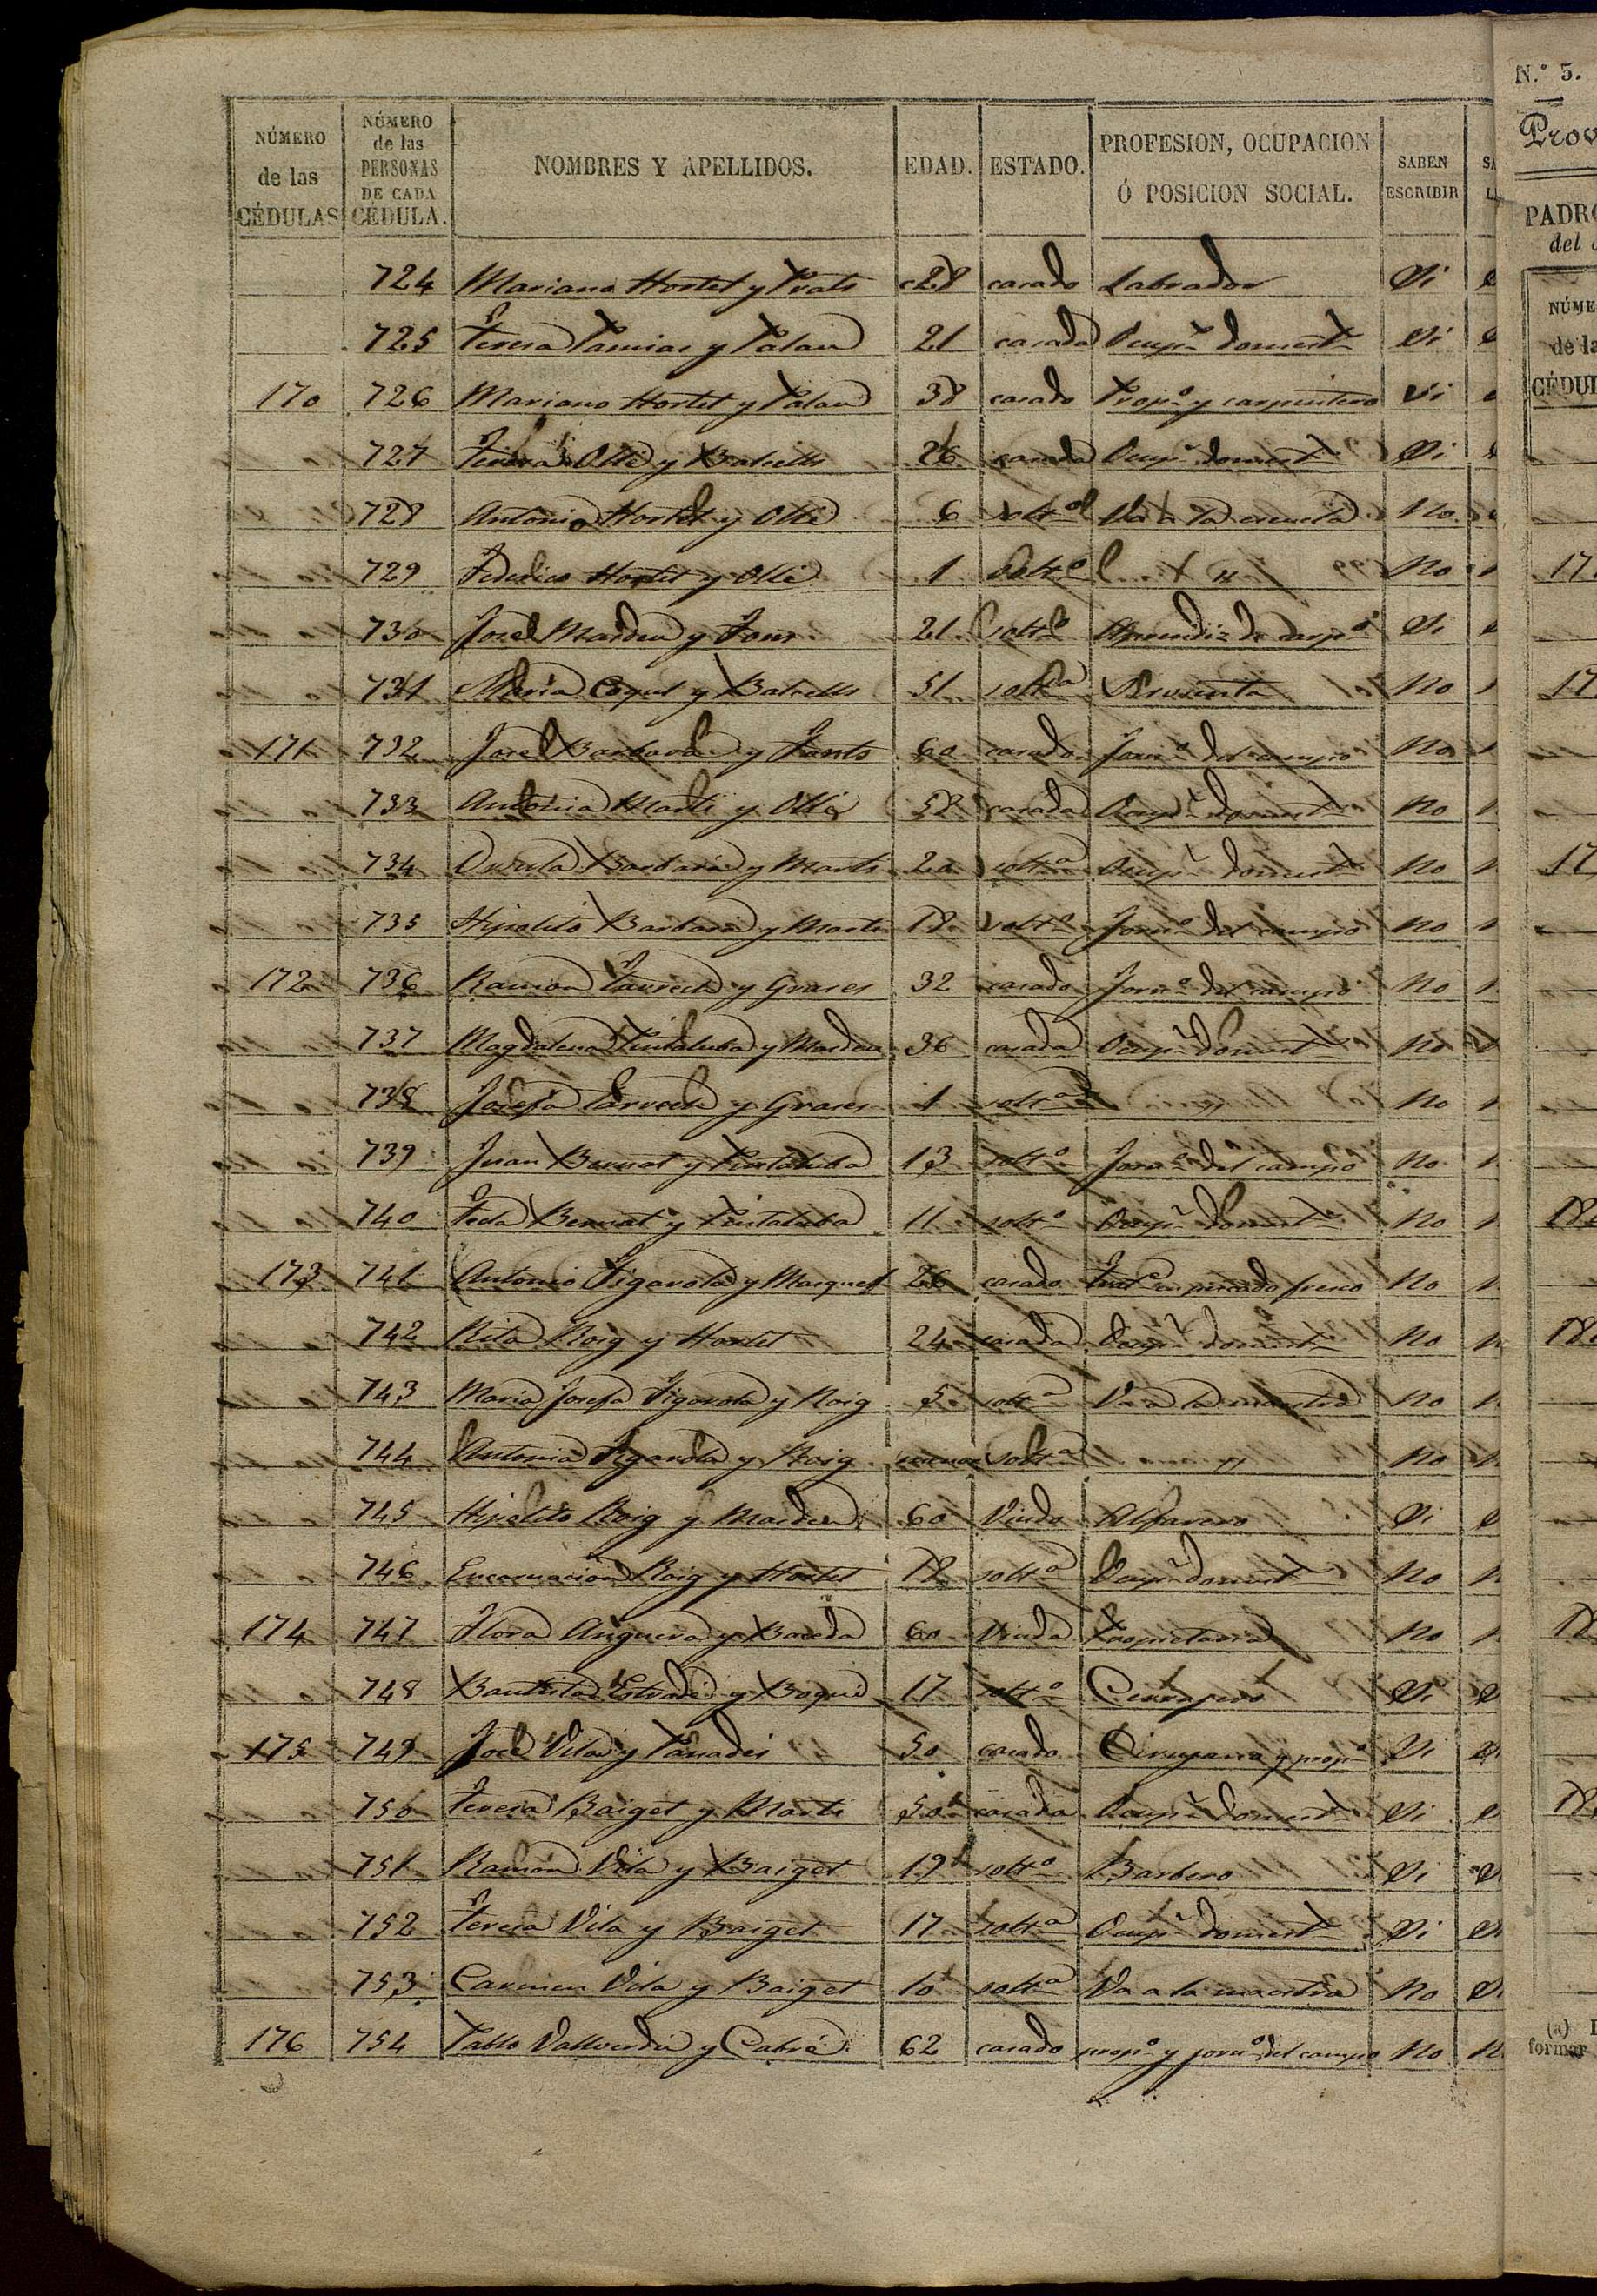 NÚMERO de las CÉDULAS | NÚMERO de las PERSONAS DE CADA CÉDULA. | NOMBRES Y APELLIDOS. | EDAD. | ESTADO. | PROFESION, OCUPACION Ó POSICION SOCIAL. | SABEN ESCRIBIR
724 Mariano Hortet y Prats 28 casado Labrador Si
725 Teresa Pamias y Palau 21 casada Ocupn domest Si
170 726 Mariano Hortet y Palau 38 casado Propo y carpintero Si
727 Teresa Ollé y Balcells 26 casada Ocupn domest Si
728 Antonio Hortet y Ollé 6 solto Va a la escuela No
729 Federico Hortet y Ollé 1 Solto " No
730 José Masdeu y Fons 21 solto Aprendiz de carpo Si
731 Maria Coqul y Balcells 51 solta Sirvienta No
171 732 José Barbará y Fonts 60 casado Jorno del campo No
733 Antonia Martí y Ollé 52 casada Ocupn domest No
734 Ursula Barbará y Martí 20 solta Ocupn domest No
735 Hipolito Barbará y Martí 18 solto Jorno del campo No
172 736 Ramon Tarrech y Grases 32 casado Jorno del campo No
737 Magdalena Pintaluba y Masdeu 36 casada Ocupn domest No
738 Josefa Tarrech y Grases 1 solta " No
739 Juan Bernat y Pintaluba 13 solto Jorno del campo No
740 Tecla Bernat y Pintaluba 11 solto Ocupn domest No
173 741 Antonio Figarola y Marquet 26 casado Trato en pescado fresco No
742 Rita Roig y Hortet 24 casada Ocupn domest No
743 Maria Josefa Figarola y Roig 5 solta Va a la maestra No
744 Antonia Figarola y Roig menor solta " No
745 Hipolito Roig y Masdeu 60 Viudo Alfarero Si
746 Encarnacion Roig y Hortet 18 solta Ocupn domest No
174 747 Flora Anguera y Baceda 60 Viuda Propietaria No
748 Bautista Estradé y Boqué 17 solto Cerrajero Si
175 749 José Vila y Panadés 50 casado Cirujano y propo Si
750 Teresa Baiget y Martí 50 casada Ocupn domest Si
751 Ramon Vila y Baiget 19 solto Barbero Si
752 Teresa Vila y Baiget 17 solta Ocupn domest Si
753 Carmen Vila y Baiget 10 solta Va a la maestra No
176 754 Pablo Vallverdú y Cabré 62 casado propo y jorno del campo No
N.º 3.
Prov
PADRO
del
NÚME
de la
CÉDUL
(a)
formar